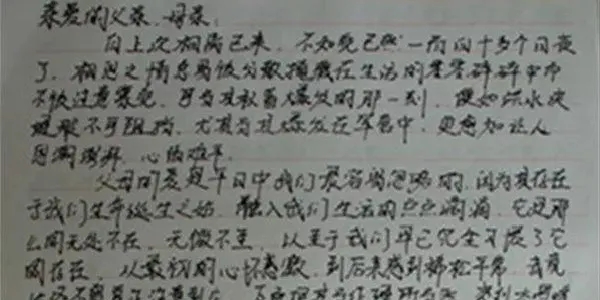 亲爱的父亲、母亲:
自上次相离已来,不知觉已然一而四十多个日夜
了,相思之情总易被分散掩藏在生活的星星碎碎中而
不被注意察觉,可当其积蓄爆发的那一刻,便如洪水决
堤般不可阻挡,尤其当其爆发在军营中,更愈加让人
思潮澎湃,心绪难平。
父母的爱是平日中我们最容易忽略的,因为其存在
于我们生命诞生之始,融入我们生活的点点滴滴,它是那
么的无处不在,无微不至,以至于我们早已完全习惯了它
的存在,从最初的心怀感激,到后来感到稀松平常